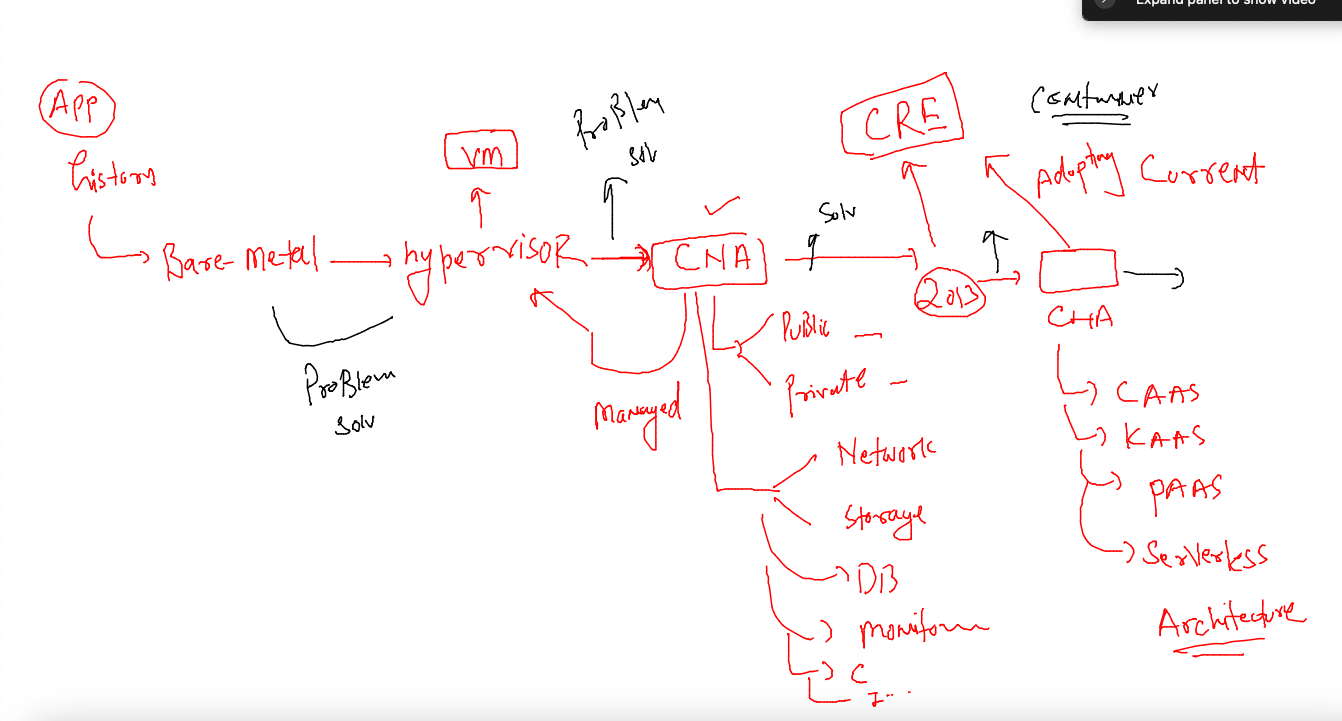 Expand panel to show video
APP
history
Bare-metal
hypervisor
vm
Problem
solv
Problem
solv
CNA
managed
Public
Private
Network
Storage
DB
C
Solv
2013
CRE
Container
Adopting Current
CNA
CAAS
KAAS
PAAS
Serverless
Architecture